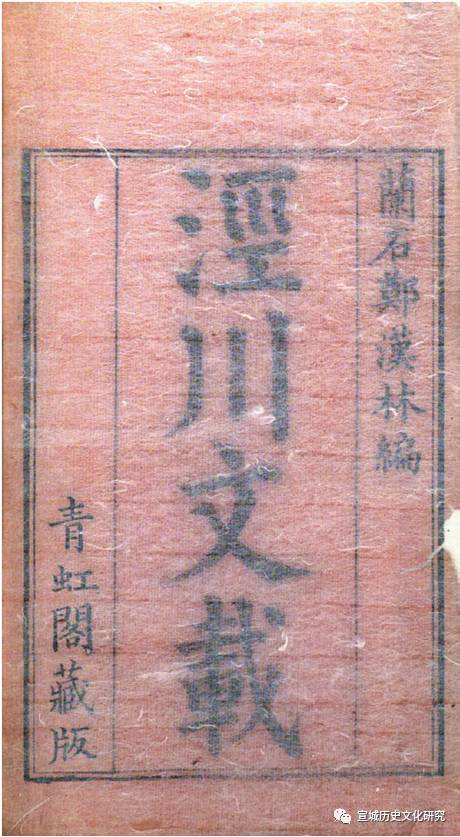 蘭石鄭漢林編
涇川文載
青虹閣藏版
宣城历史文化研究